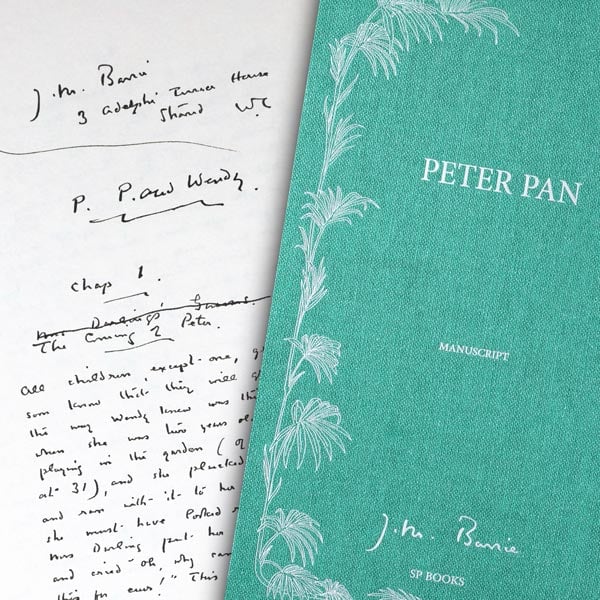 J. M. Barrie
3 Adelphi Terrace House
Strand W.C
P. P. and Wendy.
Chap 1.
Mrs Darling's
The Coming of Peter.
All children, except one, g
soon know that they will g
the way Wendy knew was thi
when she was two years ol
playing in the garden (of
at 31), and she plucked
and ran with it to her
she must have looked
Mrs Darling put her
and cried "oh, why can
this for ever!" This
PETER PAN
MANUSCRIPT
J. M. Barrie
SP BOOKS